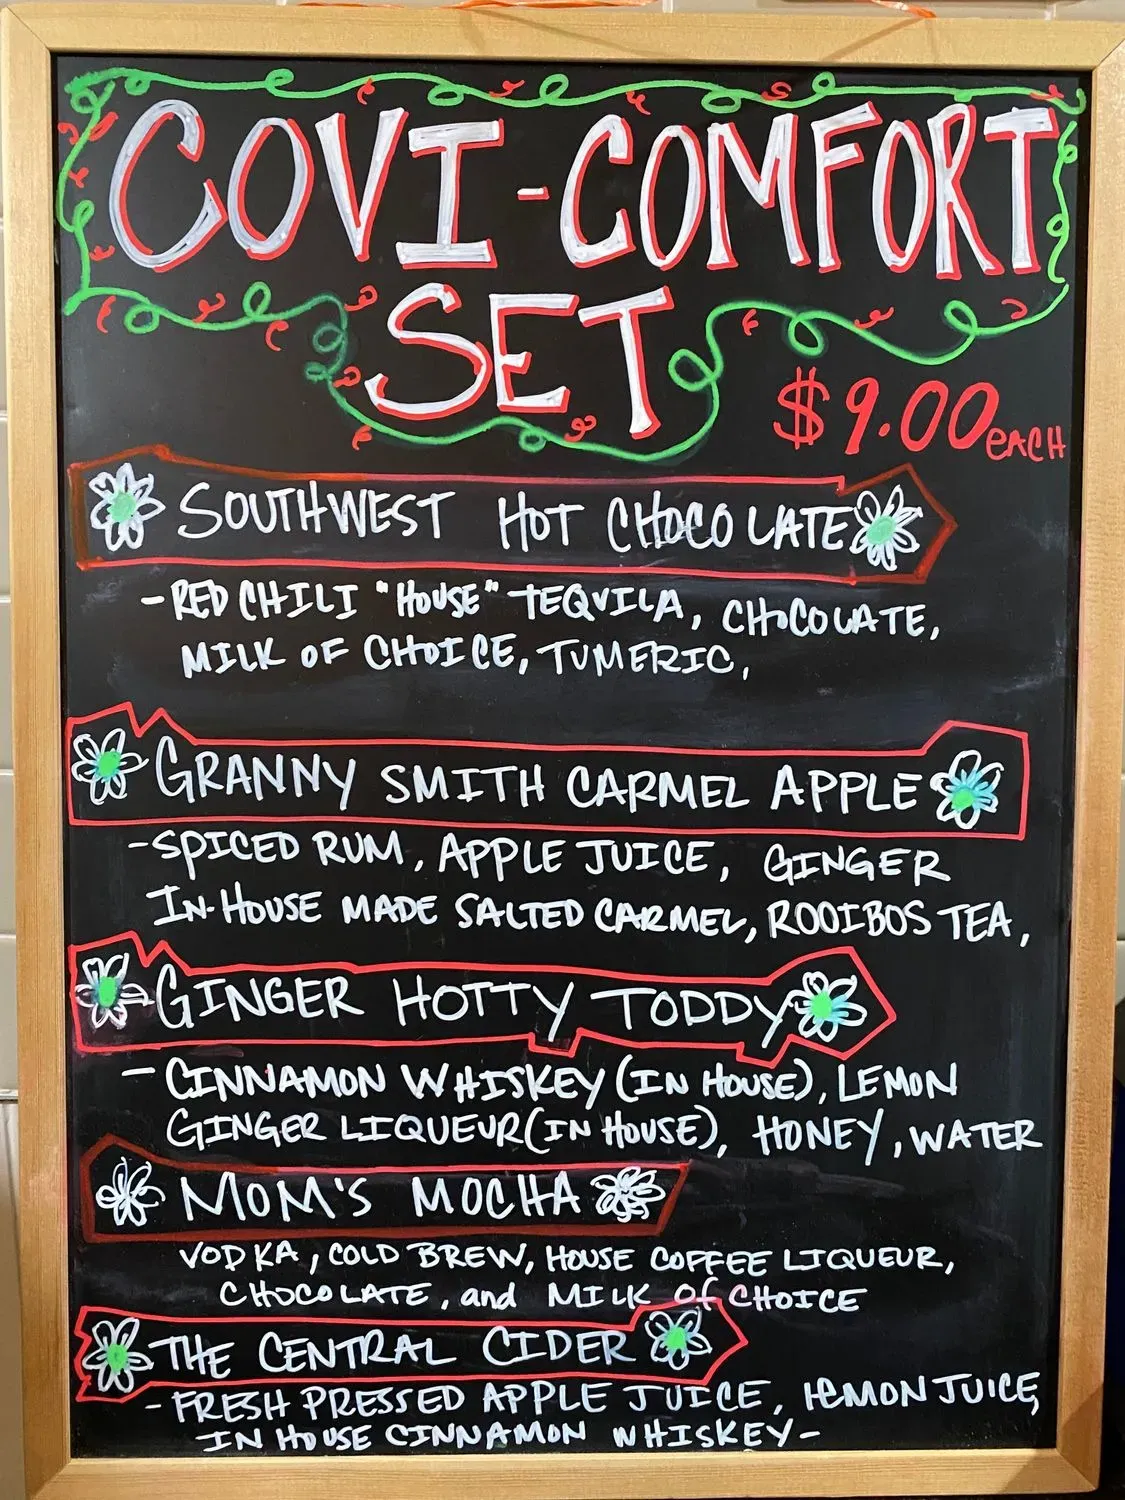 COVI-COMFORT
SET
$9.00 EACH
SOUTHWEST HOT CHOCOLATE
-RED CHILI "HOUSE" TEQUILA, CHOCOLATE,
MILK OF CHOICE, TUMERIC,
GRANNY SMITH CARMEL APPLE
-SPICED RUM, APPLE JUICE, GINGER
IN-HOUSE MADE SALTED CARMEL, ROOIBOS TEA,
GINGER HOTTY TODDY
- CINNAMON WHISKEY (IN HOUSE), LEMON
GINGER LIQUEUR (IN HOUSE), HONEY, WATER
MOM'S MOCHA
VODKA, COLD BREW, HOUSE COFFEE LIQUEUR,
CHOCOLATE, and MILK of CHOICE
THE CENTRAL CIDER
- FRESH PRESSED APPLE JUICE, LEMON JUICE,
IN HOUSE CINNAMON WHISKEY-